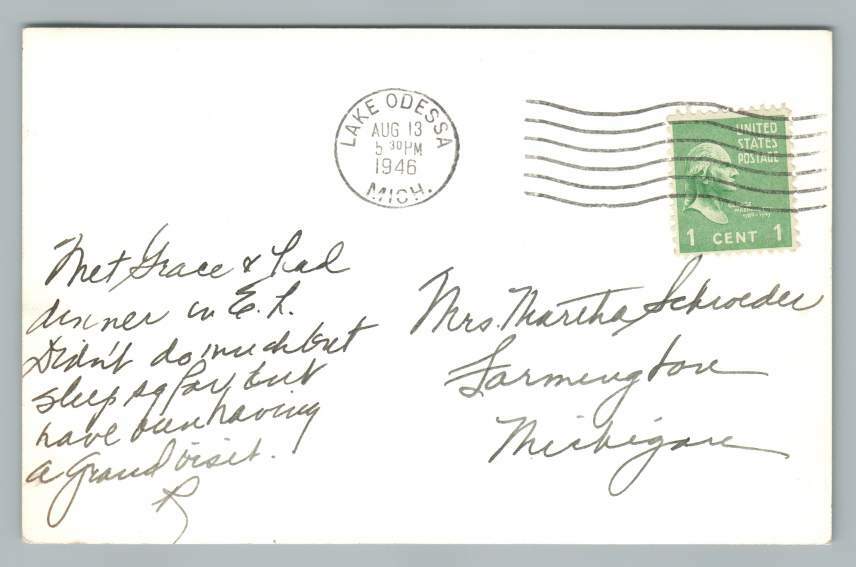 LAKE ODESSA
AUG 13
5 30 PM
1946
MICH.
UNITED
STATES
POSTAGE
GEORGE
WASHINGTON
1789-1797
1 CENT 1
Met Grace & had
dinner in E. L.
Didn't do much but
sleep so far, but
have been having
a grand visit.
R
Mrs. Martha Schroeder
Farmington
Michigan